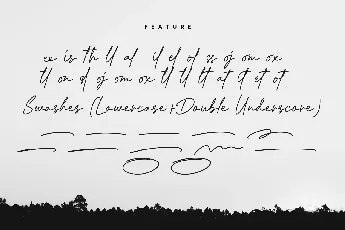 FEATURE
is th ll al il el ol os oj om ox
ll on el oj om ox tl tl lt at it et ot
Swashes (Lowercase+Double Underscore)